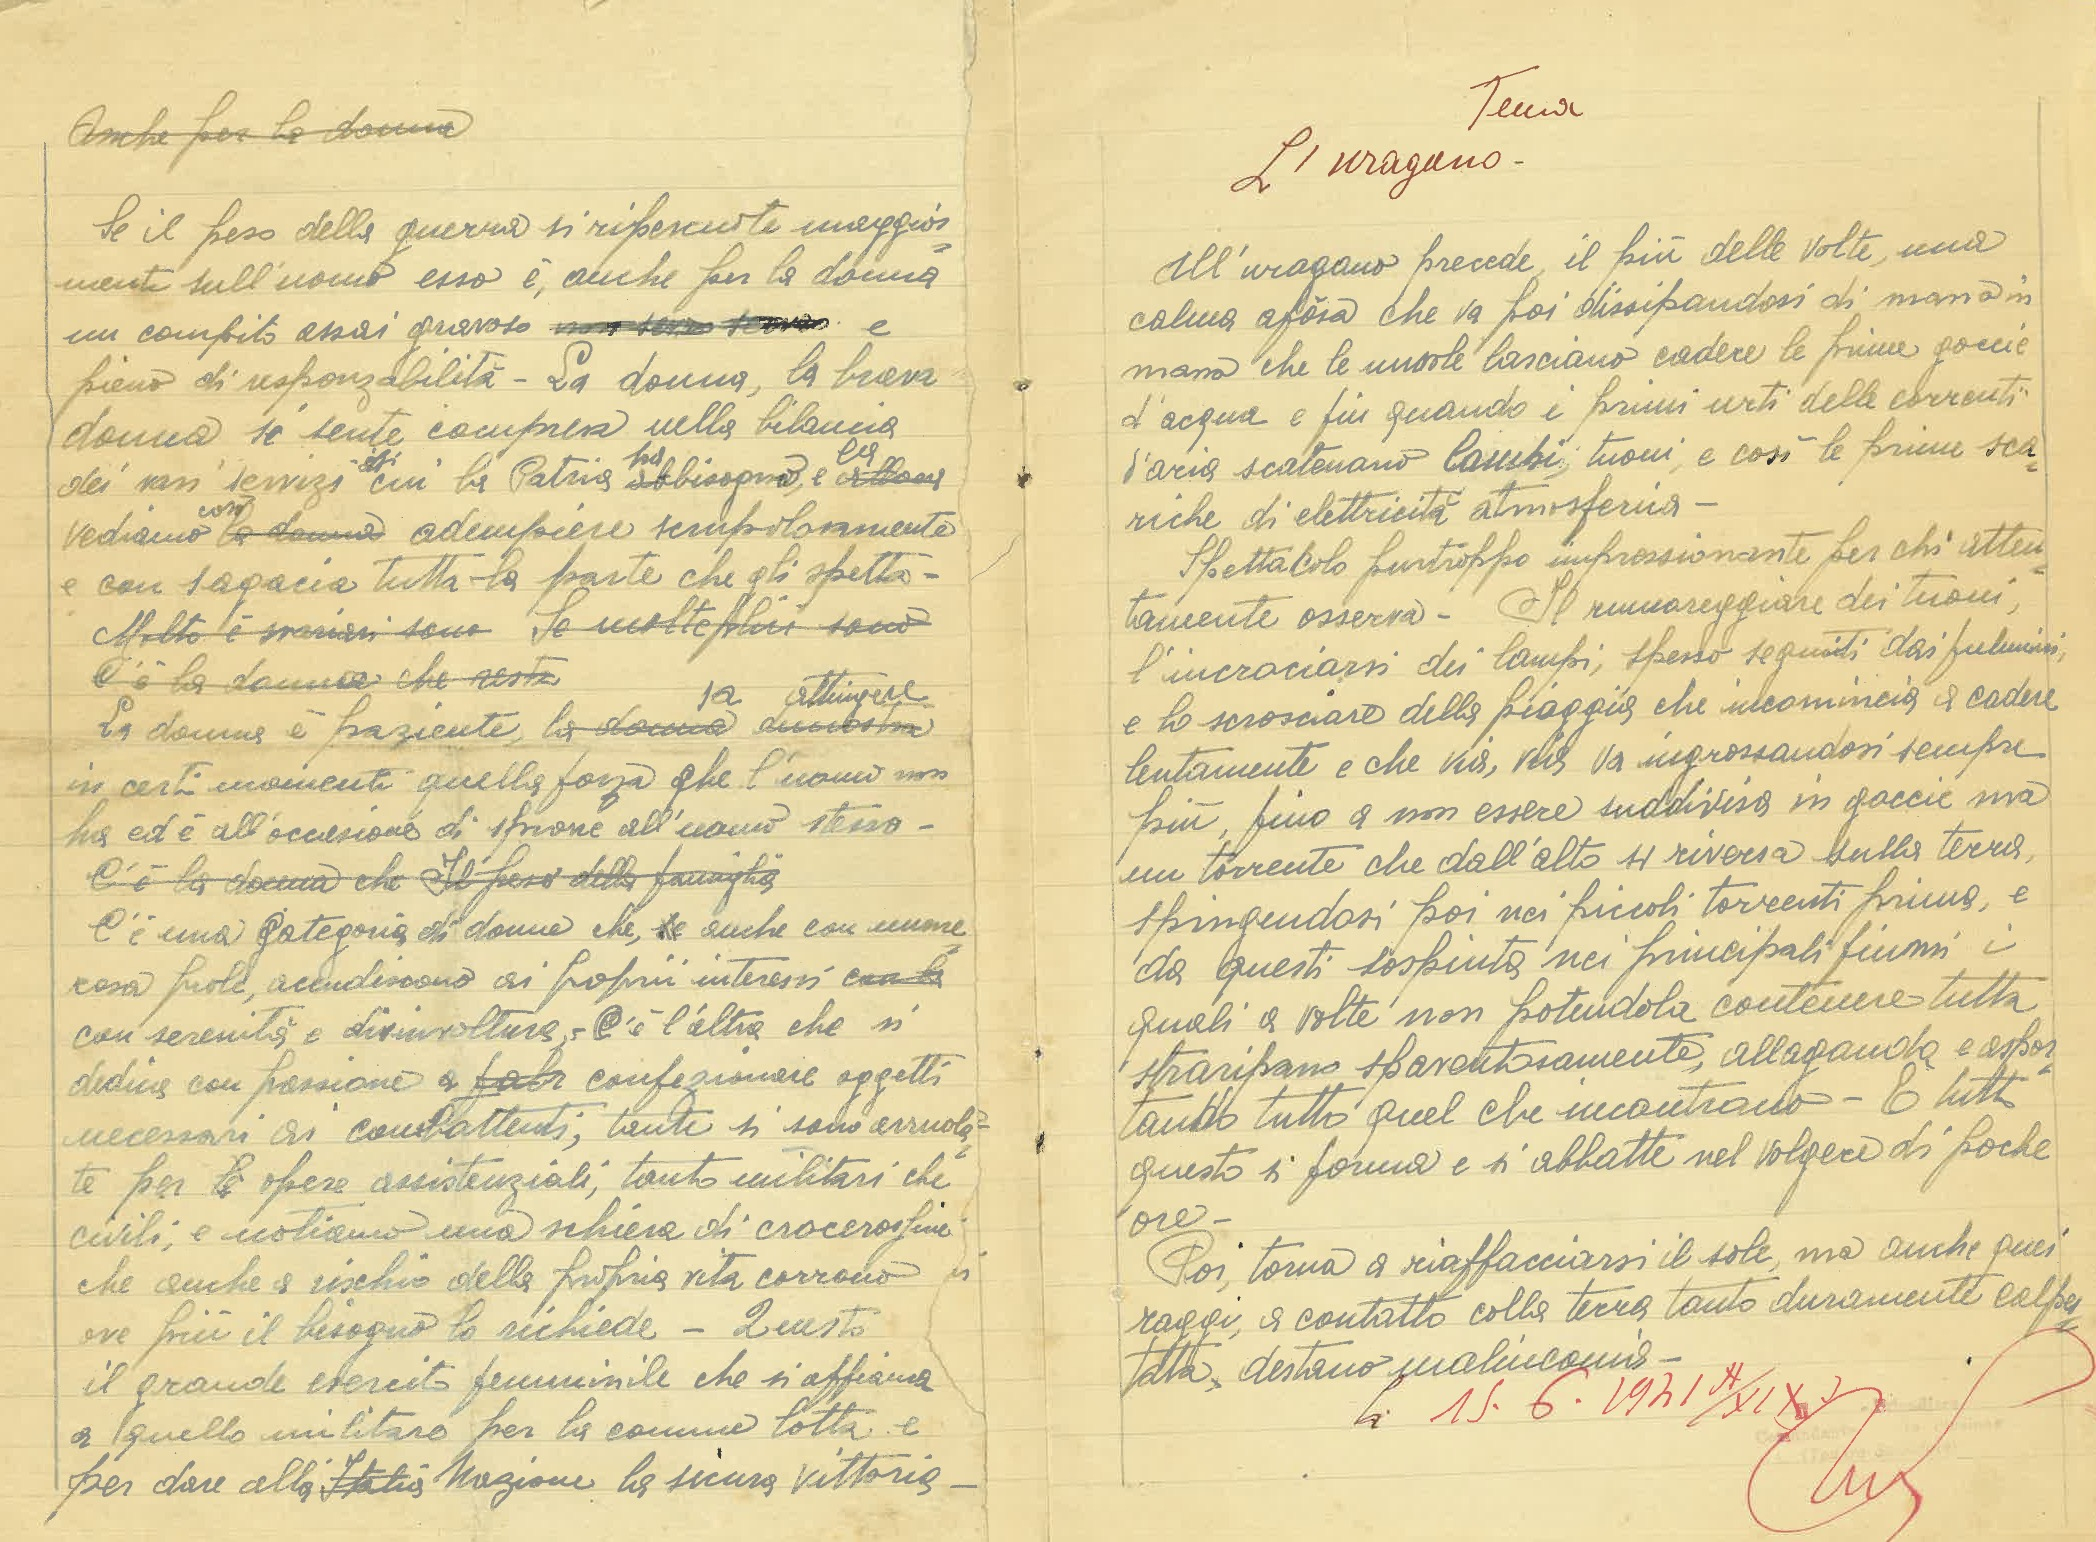 Anche per la donna
Se il peso della guerra si ripercuote maggior=
mente sull'uomo esso è, anche per la donna
un compito assai gravoso e
pieno di responzabilità - La donna, la brava
donna si sente compresa nella bilancia
dei vari servizi di cui la Patria ha bisogno, e la
vediamo così adempiere scrupolosamente
e con sagacia tutta la parte che gli spetta -
Molto è svariati sono Se molteplici sono
C'è la donna che resta
sa attingere
La donna è paziente, la donna dimostra
in certi momenti quella forza che l'uomo non
ha ed è all'occasione di sprone all'uomo stesso -
C'è la donna che Il peso della famiglia
C'è una categoria di donne che, se anche con nume=
rosa prole, accudiscono ai proprii interessi con la
con serenità e disinvoltura, - C'è l'altra che si
dedica con passione a confezionare oggetti
necessari ai combattenti, tante si sono arruola=
te per le opere assistenziali, tanto militari che
civili, e notiamo una schiera di crocerossine
che anche a rischio della propria vita corrono
ove più il bisogno lo richiede - Questo
il grande esercito femminile che si affianca
a quello militare per la comune lotta e
per dare alla Italia Nazione la sicura vittoria -
Tema
L'uragano -
All'uragano precede, il più delle volte, una
calma afosa che va poi dissipandosi di mano in
mano che le nuvole lasciano cadere le prime goccie
d'acqua e fin quando i primi urti delle correnti
d'aria scatenano lampi, tuoni, e così le prime sca=
riche di elettricità atmosferica -
Spettacolo purtroppo impressionante per chi atten=
tamente osserva - Il rumoreggiare dei tuoni,
l'incrociarsi dei lampi, spesso seguiti dai fulmini,
e lo scrosciare della pioggia che incomincia a cadere
lentamente e che via, via va ingrossandosi sempre
più, fino a non essere suddivisa in goccie ma
un torrente che dall'alto si riversa sulla terra,
spingendosi poi nei piccoli torrenti prima, e
da questi sospinta nei principali fiumi i
quali a volte non potendola contenere tutta
straripano spaventosamente, allagando e aspor=
tando tutto quel che incontrano - E tutto
questo si forma e si abbatte nel volgere di poche
ore -
Poi, torna a riaffacciarsi il sole, ma anche quei
raggi, a contatto colla terra tanto duramente calpes=
tata, destano malinconia -
li 15. 6. 1941 XIX